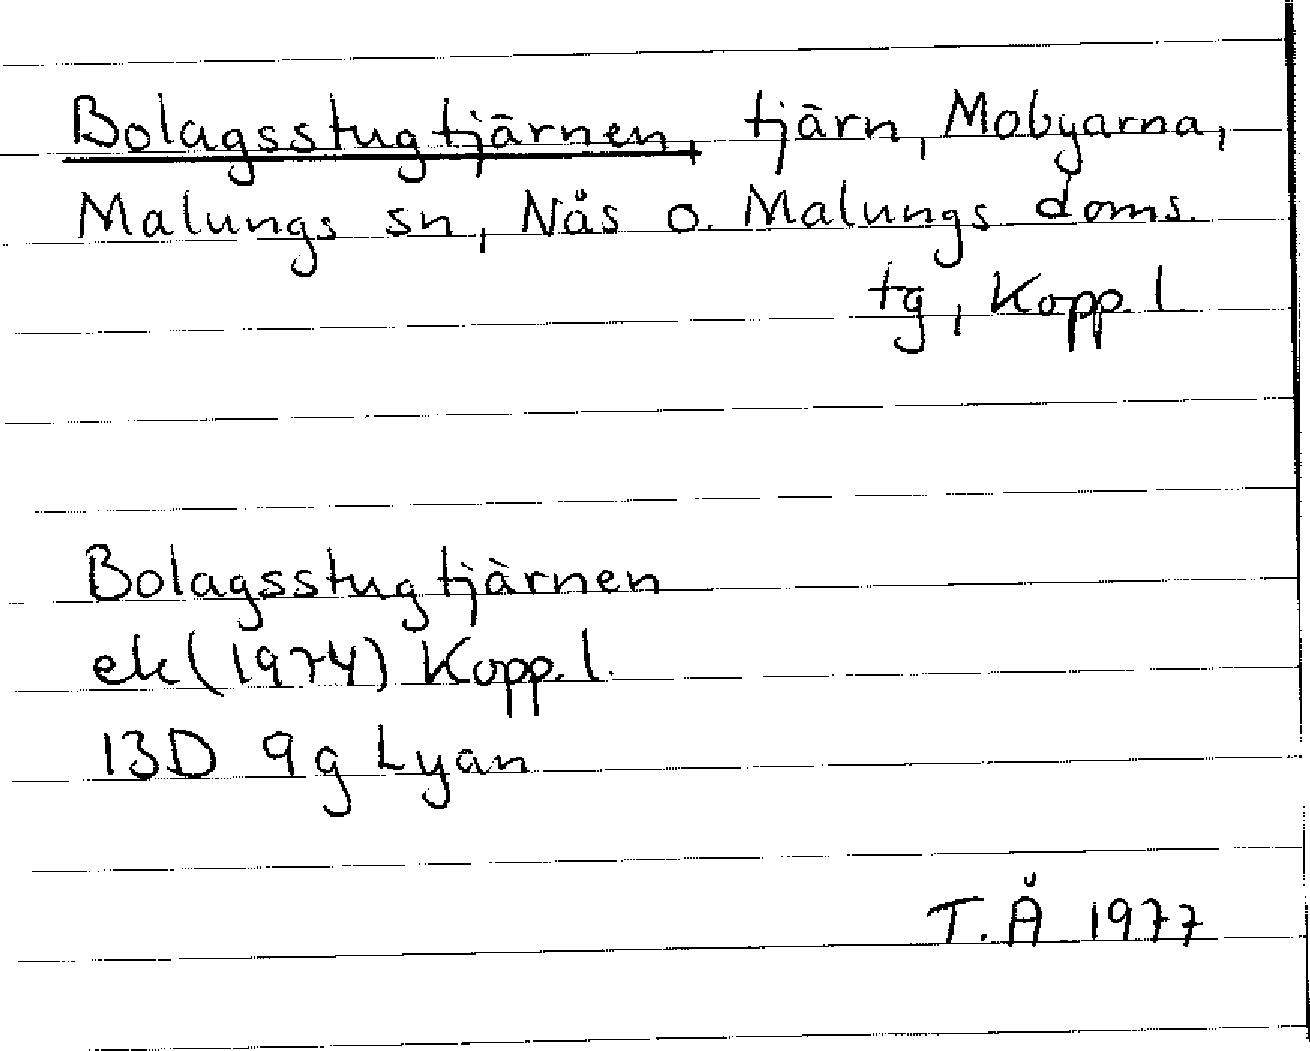 Bolagsstugtjärnen, tjärn, Mobyarna,
Malungs sn, Nås o. Malungs doms.
tg, Kopp. l
Bolagsstugtjärnen
ek (1974) Kopp. l.
13D 9g Lyan
T. Å 1977